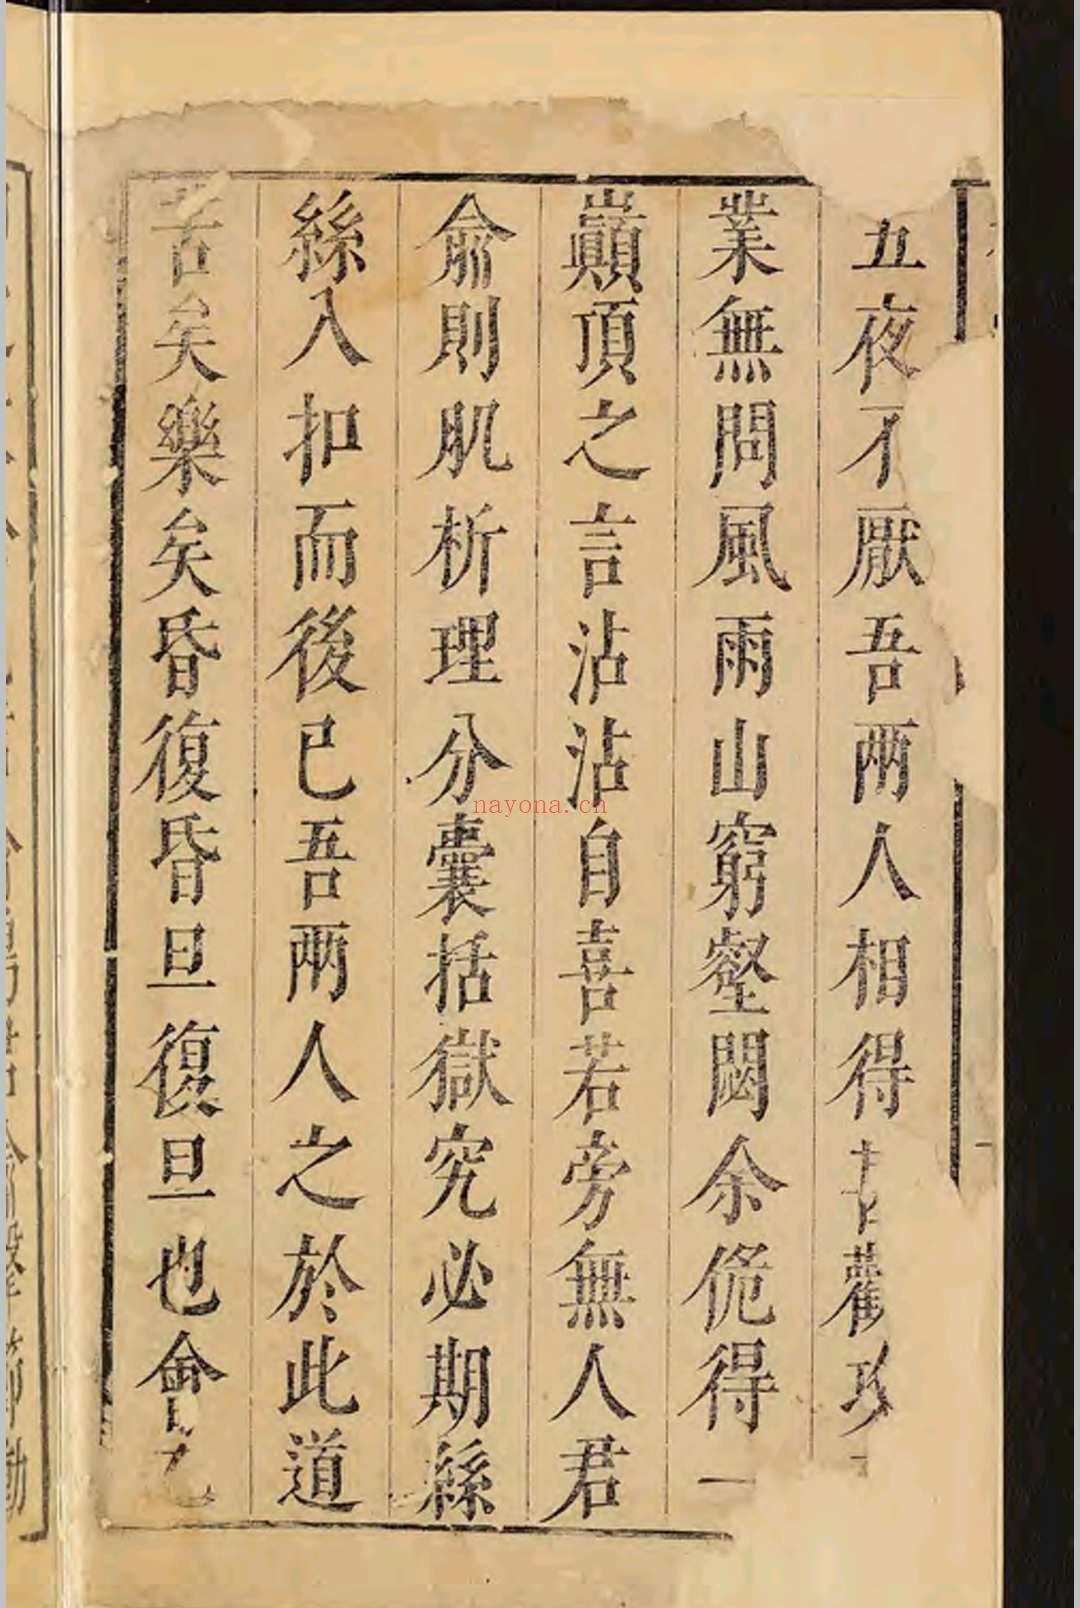 五夜不厭吾兩人相得甚歡攻
業無問風雨山窮壑閟余佹得一
巔頂之言沾沾自喜若旁無人君
俞則肌析理分囊括獄究必期絲
絲入扣而後已吾兩人之於此道
苦矣樂矣昏復昏旦復旦也會
nayona.cn